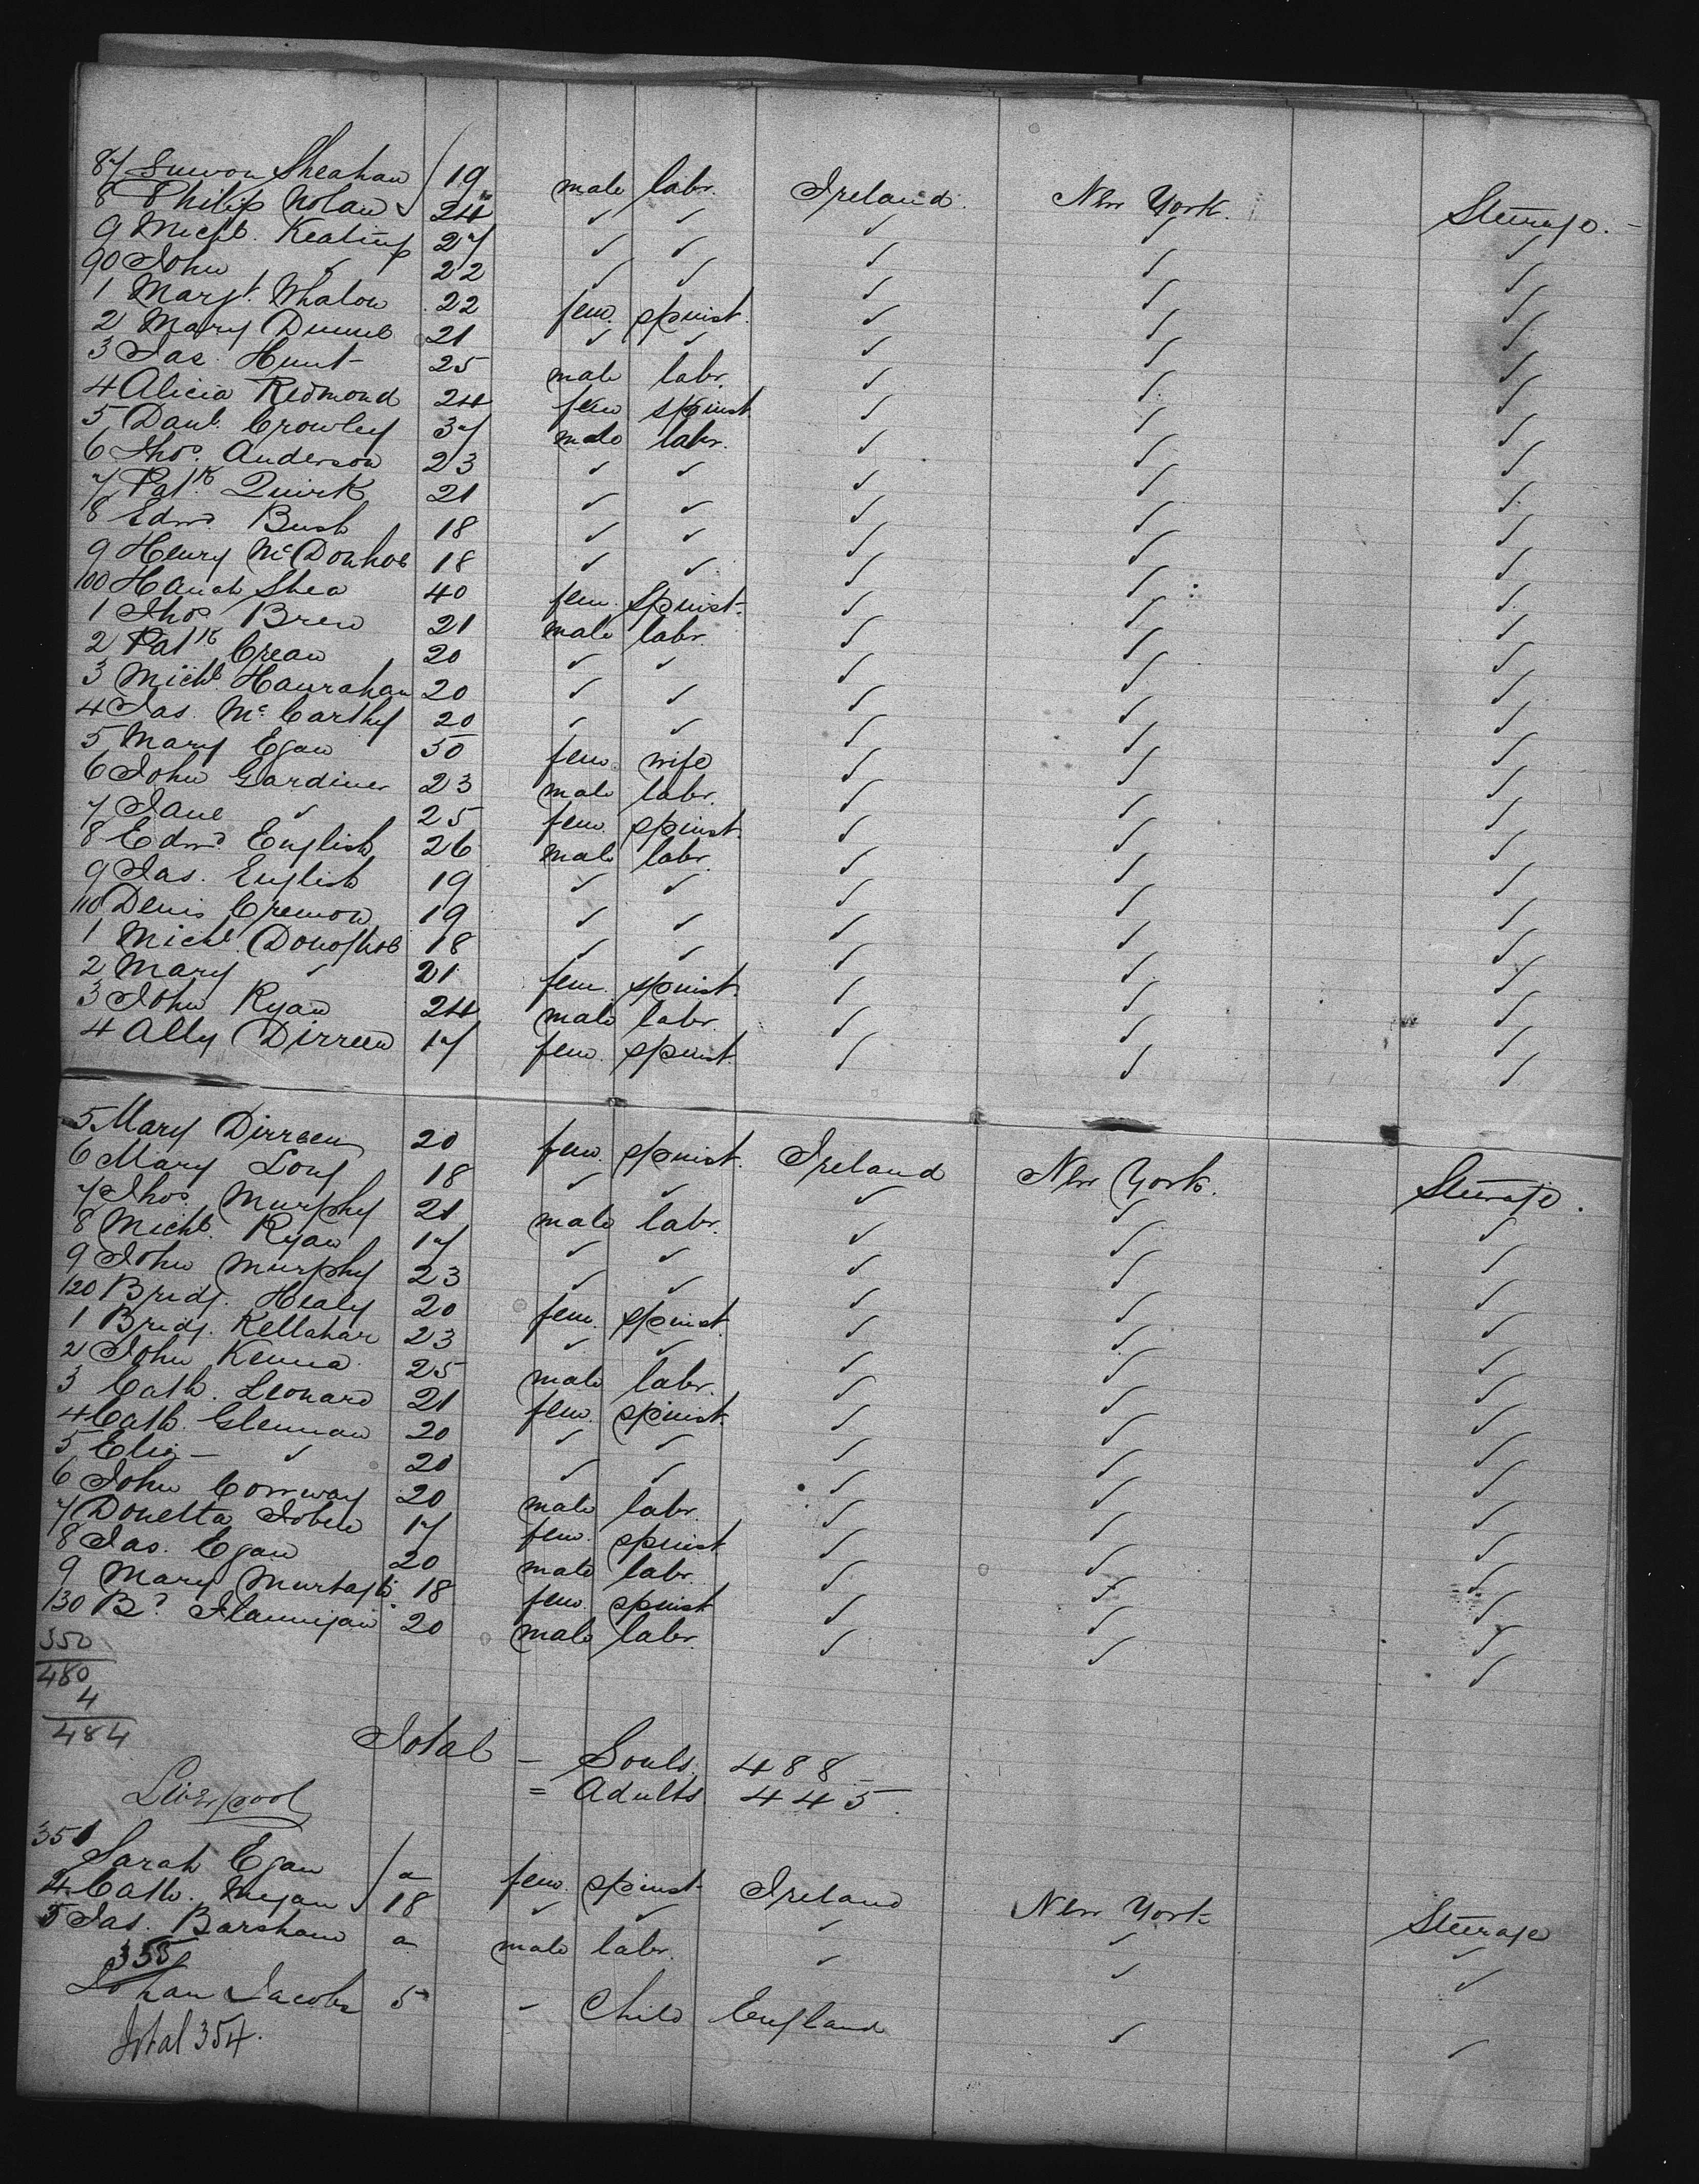 87 Simon Sheahan 19 male labr. Ireland. New York. Steerage.
8 Philip Nolan 24 ✓ ✓ ✓ ✓ ✓
9 Michl. Keating 27 ✓ ✓ ✓ ✓ ✓
90 John ✓ 22 ✓ ✓ ✓ ✓ ✓
1 Margt. Whalon 22 fem. spinst. ✓ ✓ ✓
2 Mary Dunne 21 ✓ ✓ ✓ ✓ ✓
3 Jas. Hunt 25 male labr. ✓ ✓ ✓
4 Alicia Redmond 24 fem spinst. ✓ ✓ ✓
5 Danl. Crowley 37 male labr. ✓ ✓ ✓
6 Thos. Anderson 23 ✓ ✓ ✓ ✓ ✓
7 Patk. Quirk 21 ✓ ✓ ✓ ✓ ✓
8 Edwd. Bush 18 ✓ ✓ ✓ ✓ ✓
9 Henry McDonhoe 18 ✓ ✓ ✓ ✓ ✓
100 Hanah Shea 40 fem. Spinst. ✓ ✓ ✓
1 Thos. Brew 21 male labr. ✓ ✓ ✓
2 Patk. Crean 20 ✓ ✓ ✓ ✓ ✓
3 Michl. Hanrahan 20 ✓ ✓ ✓ ✓ ✓
4 Jas. McCarthy 20 ✓ ✓ ✓ ✓ ✓
5 Mary Egan 50 fem. wife ✓ ✓ ✓
6 John Gardiner 23 male labr. ✓ ✓ ✓
7 Jane ✓ 25 fem. spinst. ✓ ✓ ✓
8 Edwd. English 26 male labr. ✓ ✓ ✓
9 Jas. English 19 ✓ ✓ ✓ ✓ ✓
110 Denis Cremon 19 ✓ ✓ ✓ ✓ ✓
1 Michl. Donoghoe 18 ✓ ✓ ✓ ✓ ✓
2 Mary ✓ 21 fem. spinst. ✓ ✓ ✓
3 John Ryan 24 male labr. ✓ ✓ ✓
4 Ally Dirreen 17 fem. spinst. ✓ ✓ ✓
5 Mary Dirreen 20 fem. spinst. Ireland New York. Steerage.
6 Mary Long 18 ✓ ✓ ✓ ✓ ✓
7 Thos. Murphy 21 male labr. ✓ ✓ ✓
8 Michl. Ryan 17 ✓ ✓ ✓ ✓ ✓
9 John Murphy 23 ✓ ✓ ✓ ✓ ✓
120 Bridg. Healy 20 fem. spinst. ✓ ✓ ✓
1 Bridg. Kellahar 23 ✓ ✓ ✓ ✓ ✓
2 John Kenna 25 male labr. ✓ ✓ ✓
3 Cath. Leonard 21 fem. spinst. ✓ ✓ ✓
4 Cath. Glennan 20 ✓ ✓ ✓ ✓ ✓
5 Eliz - ✓ 20 ✓ ✓ ✓ ✓ ✓
6 John Conway 20 male labr. ✓ ✓ ✓
7 Donetta Tobin 17 fem. spinst. ✓ ✓ ✓
8 Jas. Egan 20 male labr. ✓ ✓ ✓
9 Mary Murtagh 18 fem. spinst ✓ ✓ ✓
130 Bd. Flannigan 20 male labr. ✓ ✓ ✓
350
480
4
484
Total - Souls. 488
= Adults 445.
Liverpool
351 Sarah Egan a fem. spinst. Ireland New York Steerage
4 Cath. 18 ✓ ✓ ✓ ✓ ✓
5 Jas. Barsham a male labr. ✓ ✓ ✓
353
Johan Jacobs 5 ✓ Child England ✓ ✓
Total 354.